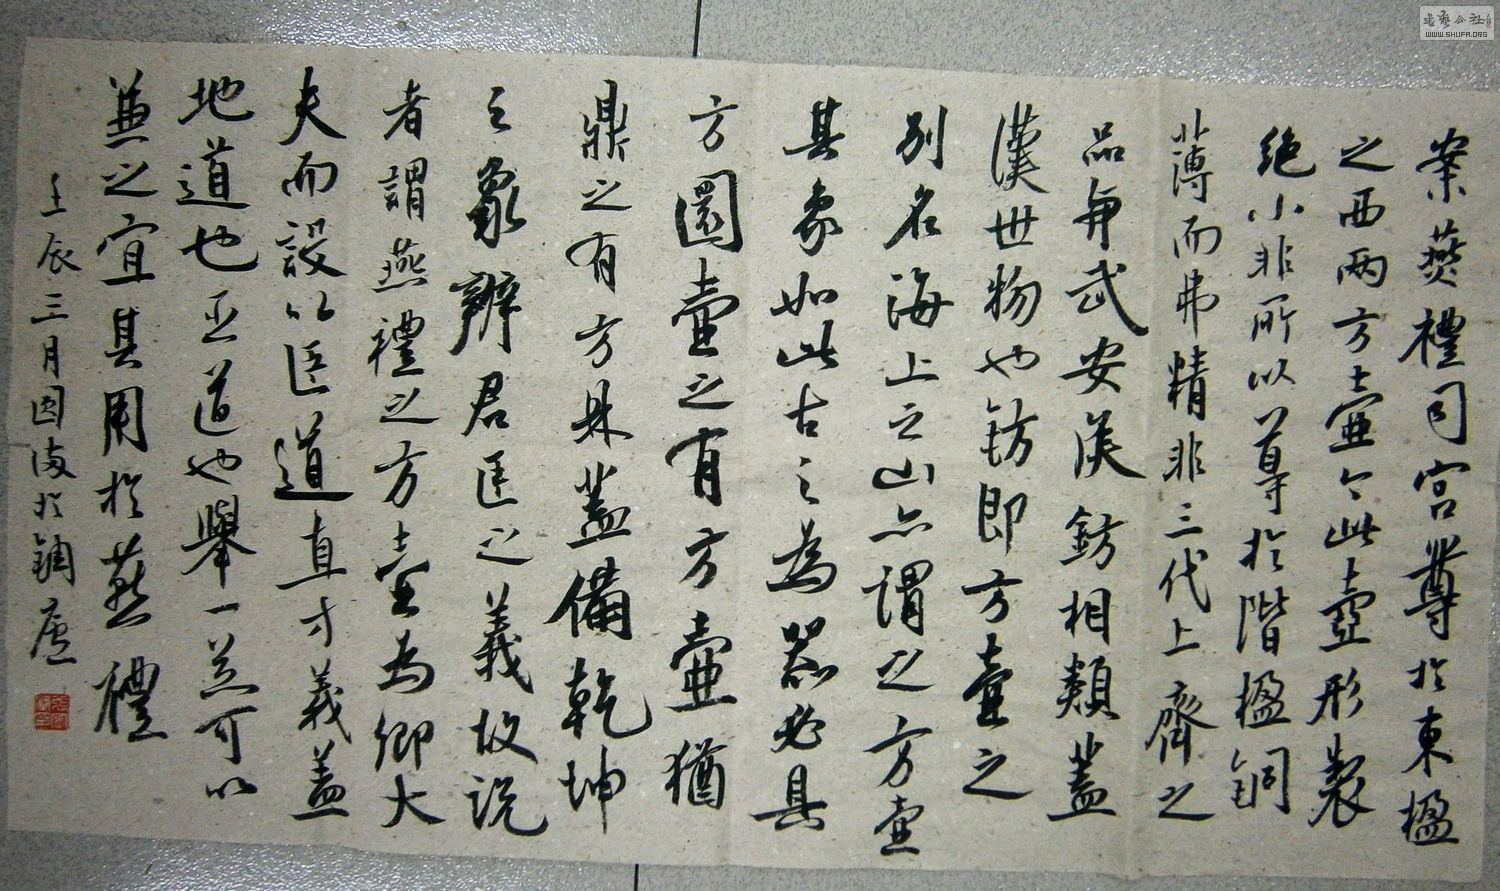 案燕禮司宮尊於東楹
之西兩方壺今此壺形製
絕小非所以尊於階楹銅
薄而弗精非三代上齊之
品與武安侯鈁相類蓋
漢世物也鈁即方壺之
別名海上之山亦謂之方壺
其象如此古之為器必具
方圜壺之有方壺猶
鼎之有方鼎蓋備乾坤
之象辨君臣之義故説
者謂燕禮之方壺為卿大
夫而設以臣道直方義蓋
地道也臣道也舉一器可以
兼之宜其用於燕禮
壬辰三月因海於鈿廬
WWW.SHUFA.ORG